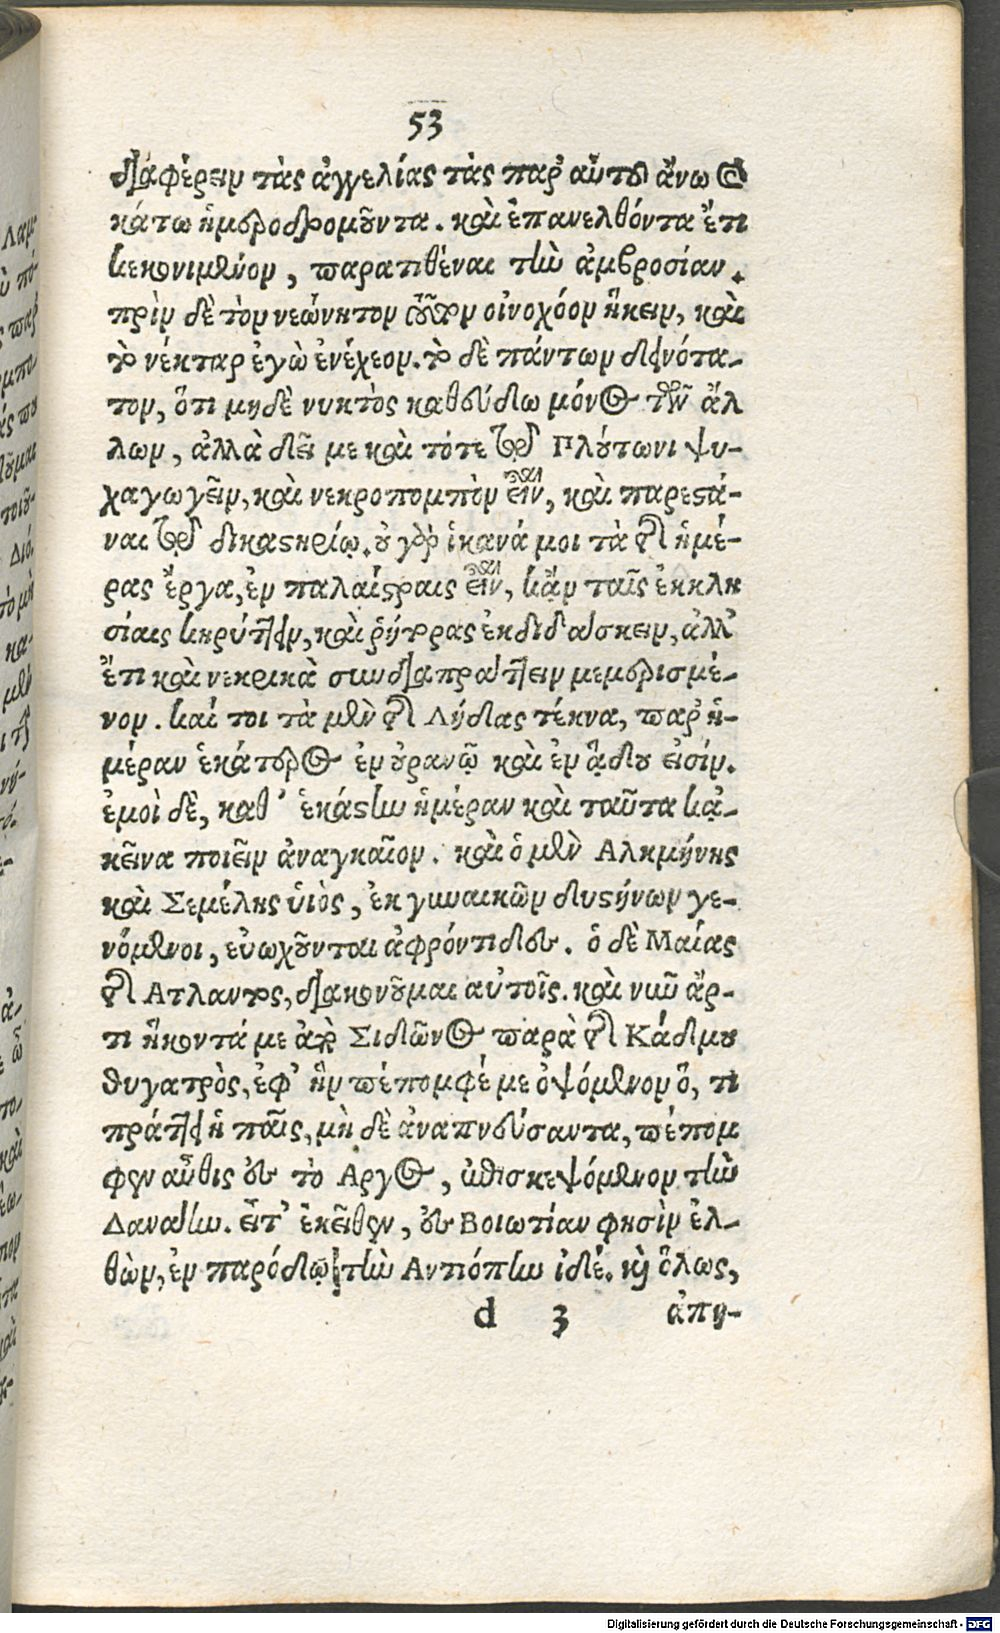 53
διαφέρειν τὰς ἀγγελίας τὰς παρ' αὐτοῦ ἄνω καὶ
κάτω ἡμεροδρομοῦντα. καὶ ἐπανελθόντα ἔτι
κεκονιμένον, παρατιθέναι τὴν ἀμβροσίαν.
πρὶν δὲ τὸν νεώνητον τοῦτον οἰνοχόον ἥκειν, καὶ
τὸ νέκταρ ἐγὼ ἐνέχεον. τὸ δὲ πάντων δεινότα-
τον, ὅτι μηδὲ νυκτὸς καθεύδω μόνος τῶν ἄλ
λων, ἀλλὰ δεῖ με καὶ τότε τῷ Πλούτωνι ψυ-
χαγωγεῖν, καὶ νεκροπομπὸν εἶναι, καὶ παρεστά-
ναι τῷ δικαστηρίῳ. οὐ γὰρ ἱκανά μοι τὰ τῆς ἡμέ-
ρας ἔργα, ἐν παλαίστραις εἶναι, κἂν ταῖς ἐκκλη
σίαις κηρύττειν, καὶ ῥήτορας ἐκδιδάσκειν, ἀλλ'
ἔτι καὶ νεκρικὰ συνδιαπράττειν μεμερισμέ-
νον. καί τοι τὰ μὲν τῆς Λήδας τέκνα, παρ' ἡ-
μέραν ἑκάτερος ἐν οὐρανῷ καὶ ἐν ᾅδου εἰσίν.
ἐμοὶ δὲ, καθ' ἑκάστην ἡμέραν καὶ ταῦτα κᾀ-
κεῖνα ποιεῖν ἀναγκαῖον. καὶ ὁ μὲν Αλκμήνης
καὶ Σεμέλης υἱὸς, ἐκ γυναικῶν δυστήνων γε-
νόμενοι, εὐωχοῦνται ἀφρόντιδες. ὁ δὲ Μαίας
τῆς Ατλαντος, διακονοῦμαι αὐτοῖς. καὶ νῦν ἄρ-
τι ἥκοντά με ἀπὸ Σιδῶνος παρὰ τῆς Κάδμου
θυγατρὸς, ἐφ' ἣν πέπομφέ με ὀψόμενον ὅ, τι
πράττει ἡ παῖς, μὴ δὲ ἀναπνεύσαντα, πέπομ
φεν αὖθις ἐς τὸ Αργος, ἐπισκεψόμενον τὴν
Δανάην. εἶτ' ἐκεῖθεν, ἐς Βοιωτίαν φησὶν ἐλ-
θὼν, ἐν παρόδῳ τὴν Αντιόπην ἰδέ. καὶ ὅλως,
d 3 ἀπη-
Digitalisierung gefördert durch die Deutsche Forschungsgemeinschaft - DFG